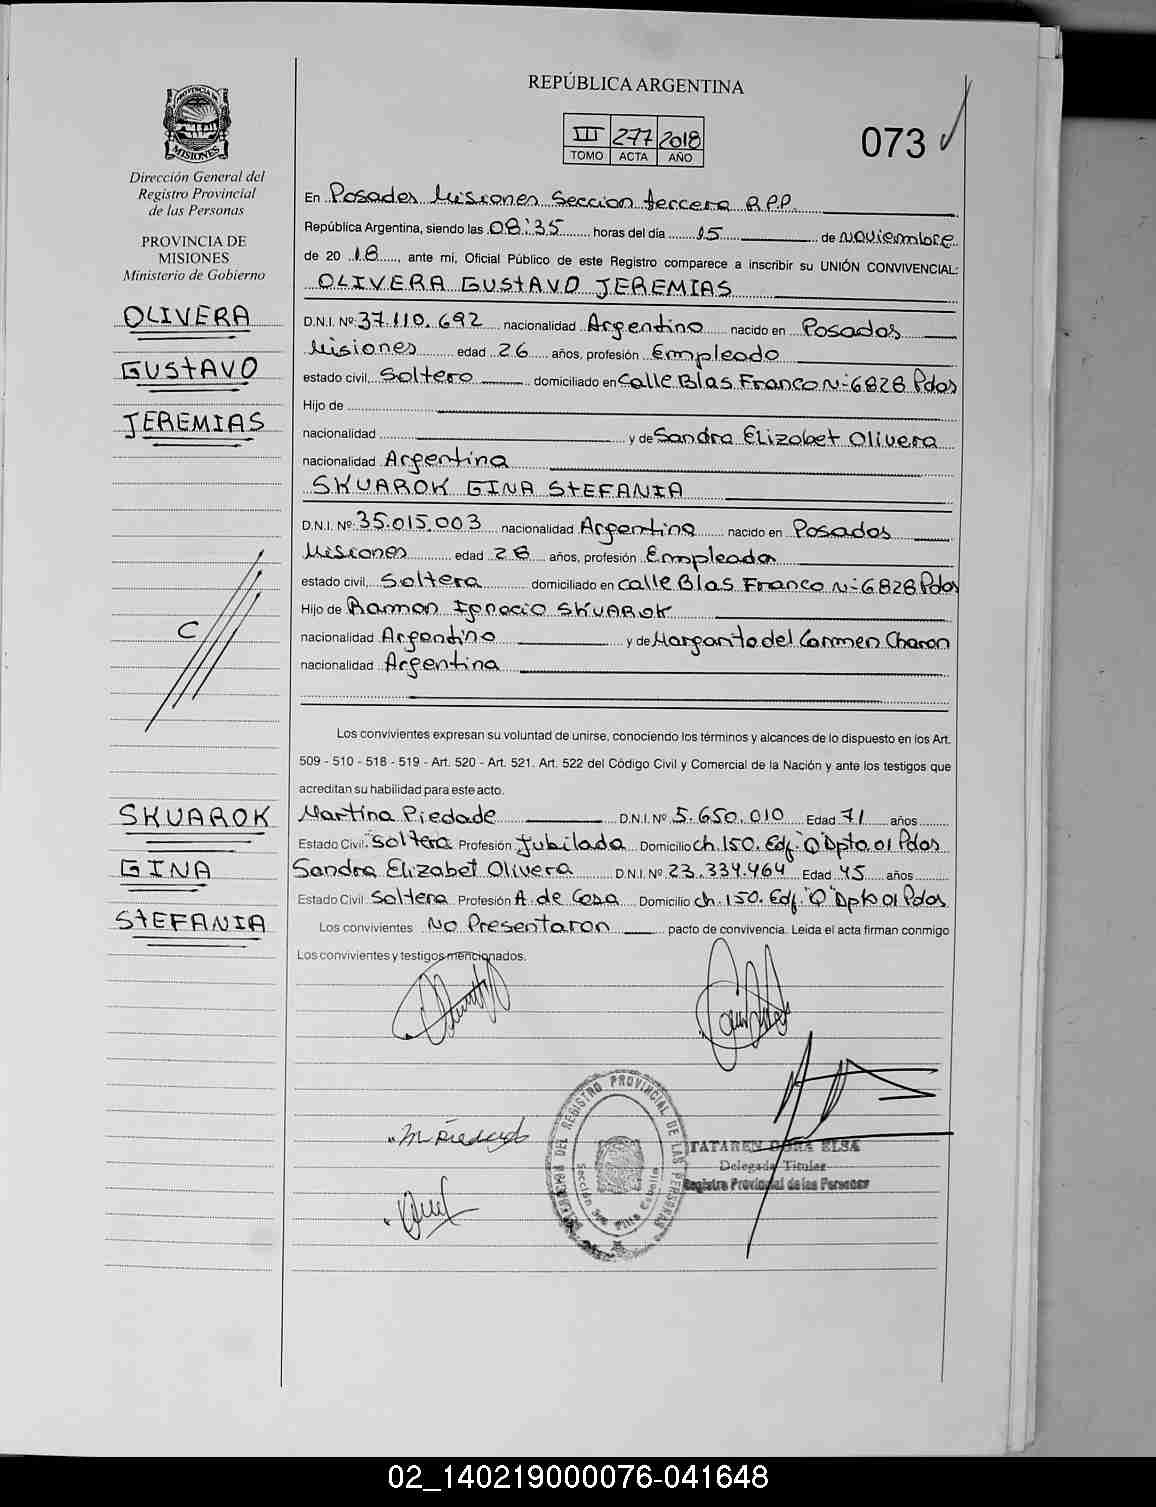 REPÚBLICA ARGENTINA
III 277 2018
TOMO ACTA AÑO
073
PROVINCIA DE MISIONES
Dirección General del
Registro Provincial
de las Personas
PROVINCIA DE
MISIONES
Ministerio de Gobierno
OLIVERA
GUSTAVO
JEREMIAS
C
SKUAROK
GINA
STEFANIA
En Posadas Misiones Seccion tercera R.P.P.
República Argentina, siendo las 08:35 horas del día 15 de Noviembre
de 20 18, ante mi, Oficial Público de este Registro comparece a inscribir su UNIÓN CONVIVENCIAL:
OLIVERA GUSTAVO JEREMIAS
D.N.I. Nº 37.110.692 nacionalidad Argentino nacido en Posadas
Misiones edad 26 años, profesión Empleado
estado civil, Soltero domiciliado en Calle Blas Franco N-6828 Pdas
Hijo de
nacionalidad y de Sandra Elizabet Olivera
nacionalidad Argentina
SKUAROK GINA STEFANIA
D.N.I. Nº 35.015.003 nacionalidad Argentina nacido en Posadas
Misiones edad 28 años, profesión Empleada
estado civil, Soltera domiciliado en calle Blas Franco N-6828 Pdas
Hijo de Ramon Ignacio SKUAROK
nacionalidad Argentino y de Margarita del Carmen Charon
nacionalidad Argentina
Los convivientes expresan su voluntad de unirse, conociendo los términos y alcances de lo dispuesto en los Art.
509 - 510 - 518 - 519 - Art. 520 - Art. 521. Art. 522 del Código Civil y Comercial de la Nación y ante los testigos que
acreditan su habilidad para este acto.
Martina Piedade D.N.I. Nº 5.650.010 Edad 71 años
Estado Civil Soltera Profesión Jubilada Domicilio ch.150. Edf. "Q" Dpto.01 Pdas
Sandra Elizabet Olivera D.N.I. Nº 23.334.464 Edad 45 años
Estado Civil Soltera Profesión A. de Casa Domicilio ch.150. Edf. "Q" Dpto 01 Pdas
Los convivientes No Presentaron pacto de convivencia. Leida el acta firman conmigo
Los convivientes y testigos mencionados.
M Piedade
REGISTRO PROVINCIAL DE LAS PERSONAS
TATAREN DORA ELSA
Delegada Titular
Registro Provincial de las Personas
02_140219000076-041648